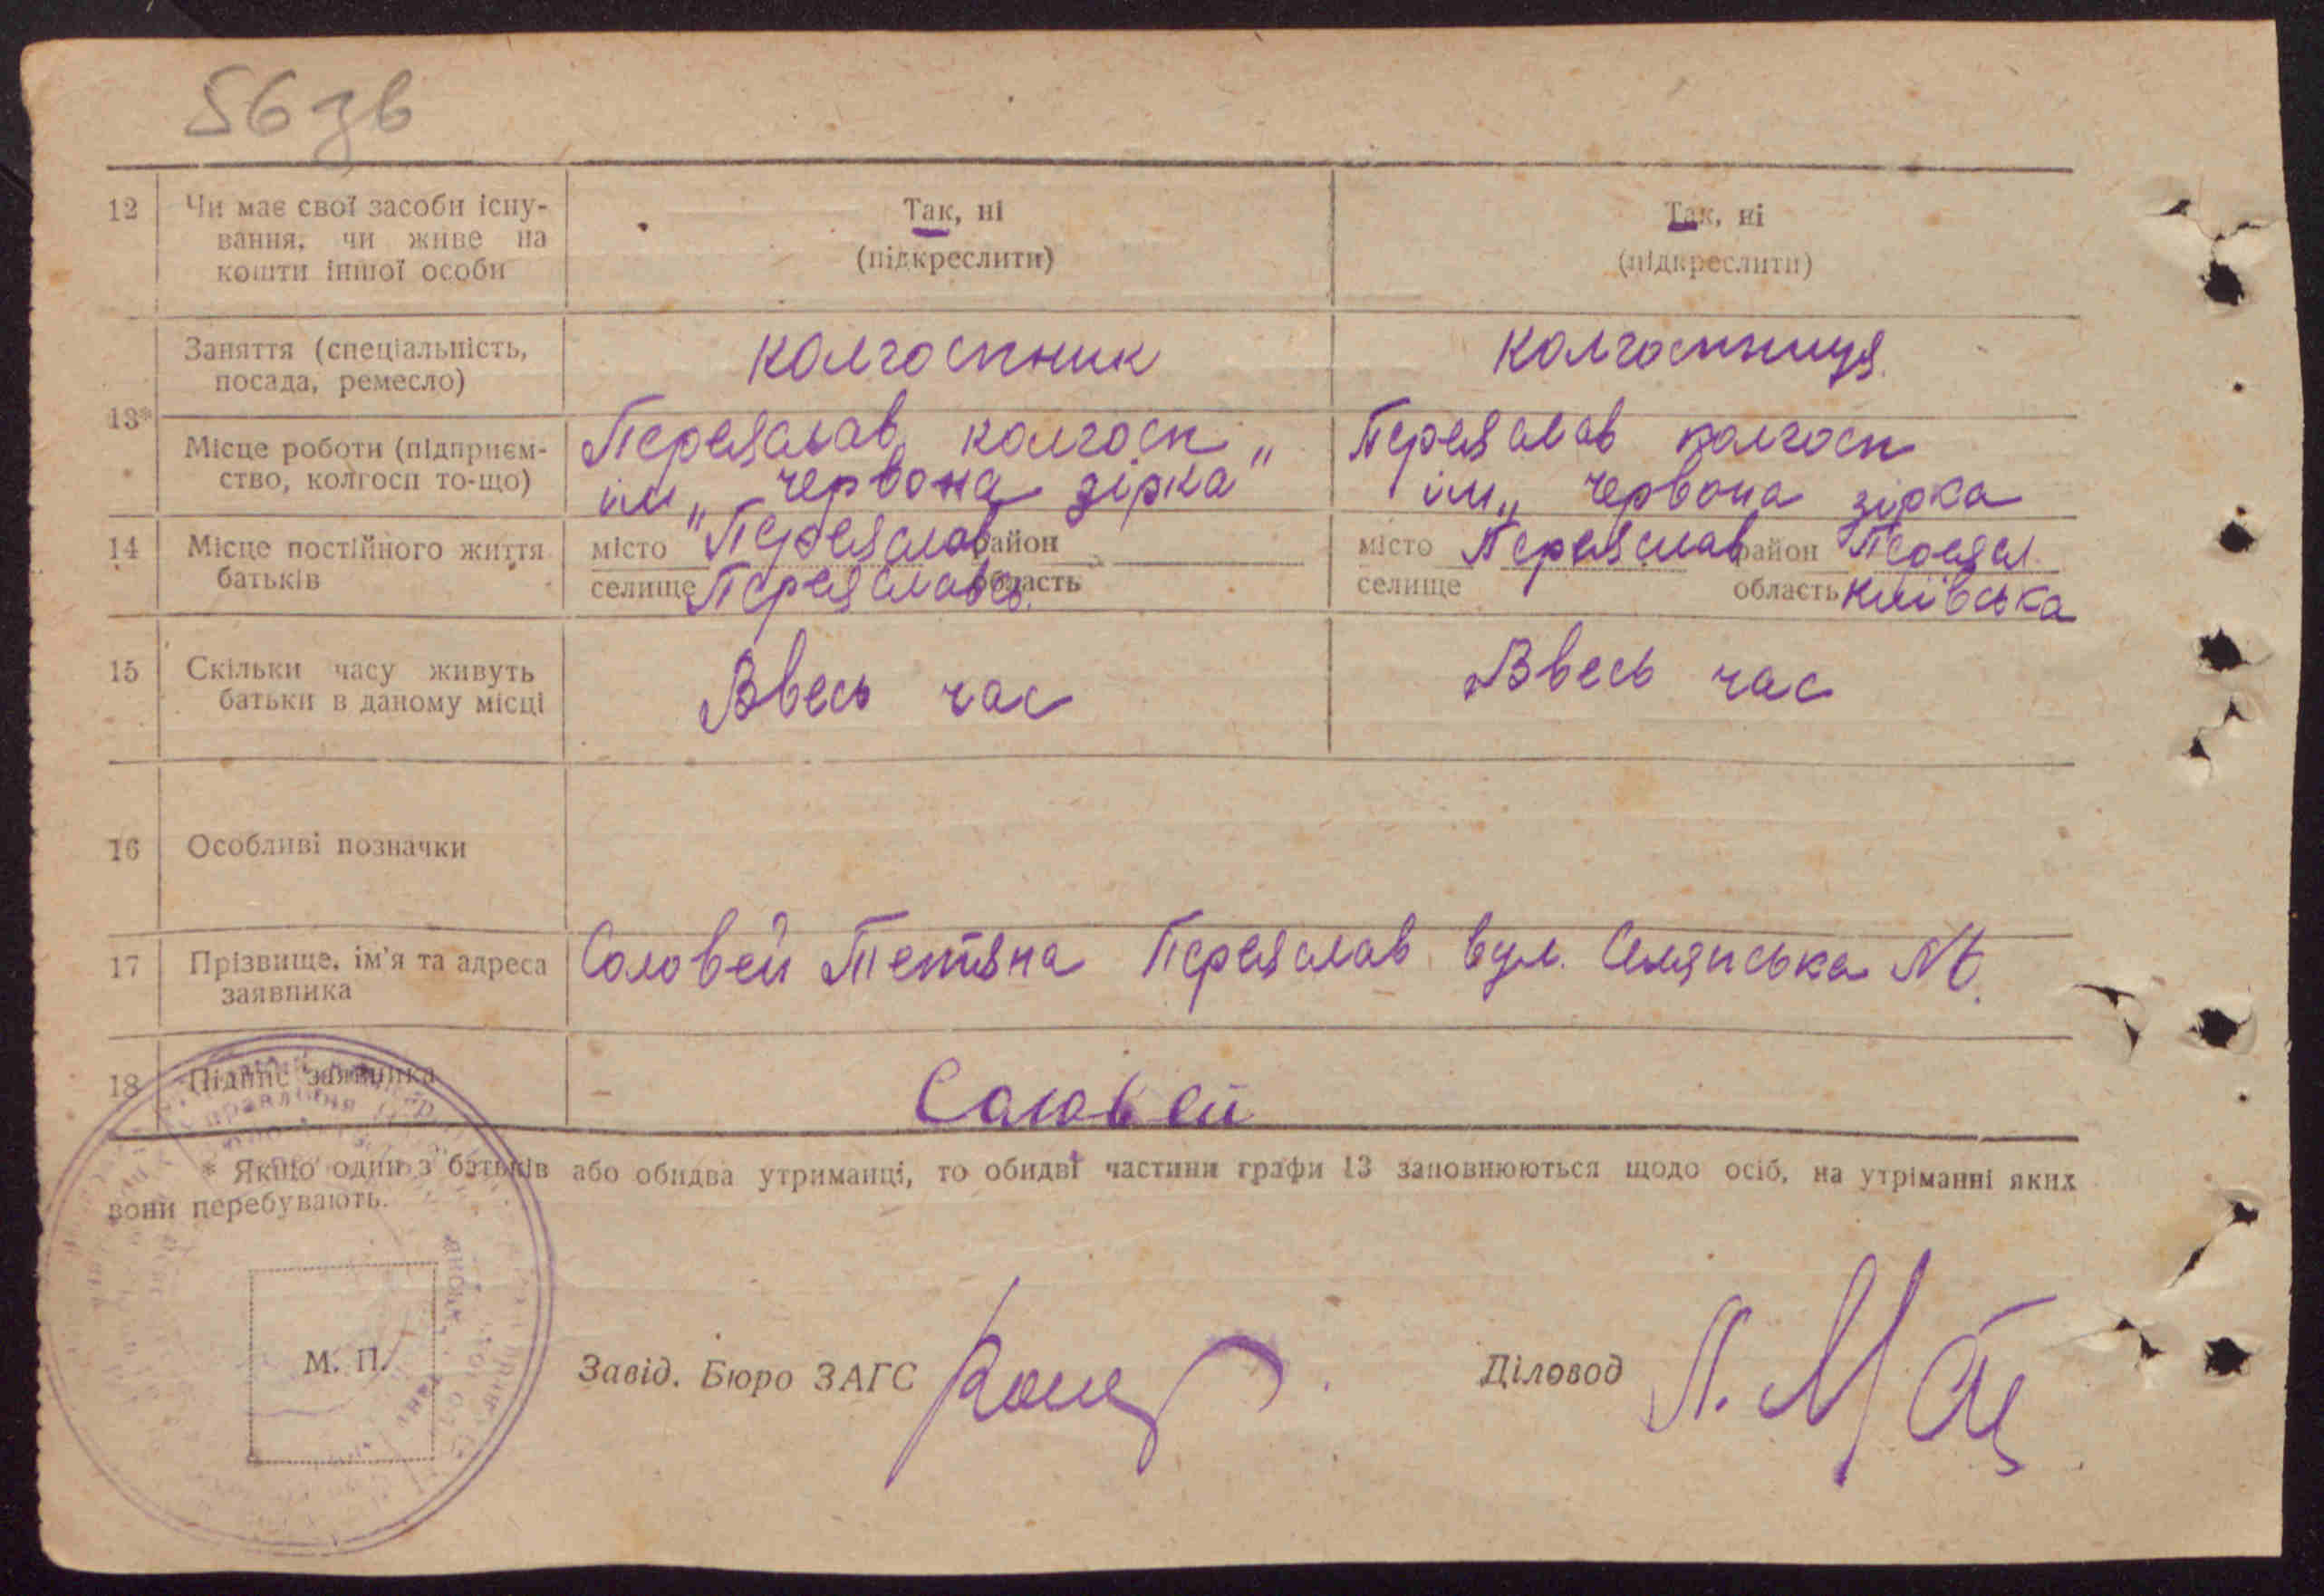 56 зв
12 Чи має свої засоби існу-
вання, чи живе на
кошти іншої особи
Так, ні
(підкреслити)
Так, ні
(підкреслити)
13*
Заняття (спеціальність,
посада, ремесло)
колгоспник
колгоспниця.
Місце роботи (підприєм-
ство, колгосп то-що)
Переяслав, колгосп
ім „червона зірка"
Переяслав колгосп
ім „червона зірка
14 Місце постійного життя
батьків
місто Переяслав район
селище Переяславсь. область
місто Переяслав район Переясл.
селище область Київська
15 Скільки часу живуть
батьки в даному місці
Ввесь час
Ввесь час
16 Особливі позначки
17 Прізвище, ім'я та адреса
заявника
Соловей Тетяна Переяслав вул. №.
18 Підпис заявника
Соловей
* Якщо один з батьків або обидва утриманці, то обидві частини графи 13 заповнюються щодо осіб, на утріманні яких
вони перебувають.
М. П.
Завід. Бюро ЗАГС
Діловод